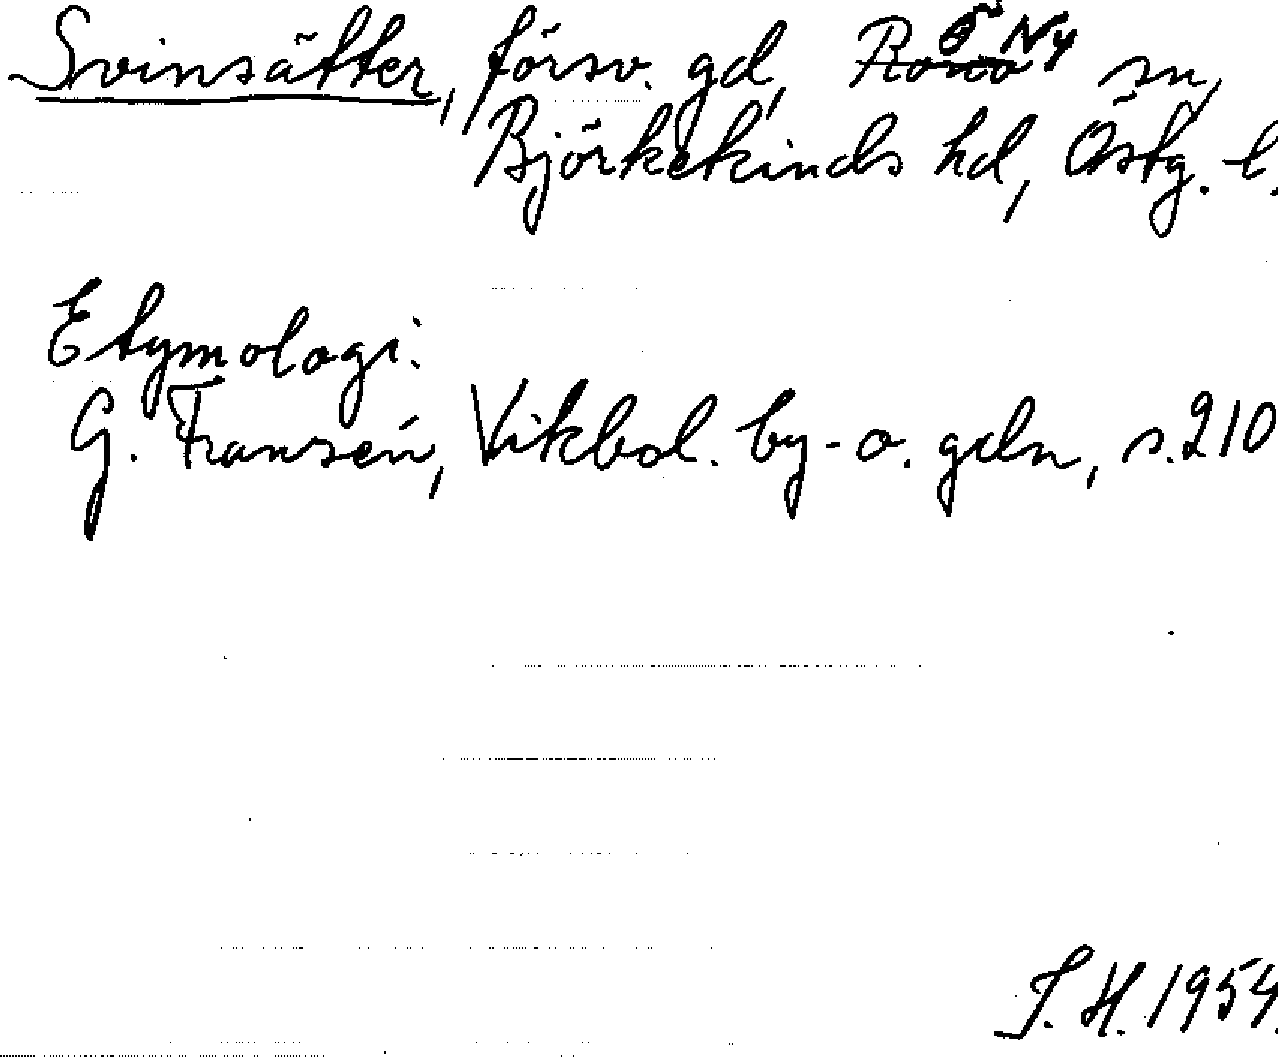 Svinsätter, försv. gd, Ö Ny sn,
Björkekinds hd, Östg. l.
Etymologi:
G. Franzén, Vikbol. by- o. gdn, s. 210
J. H. 1954.